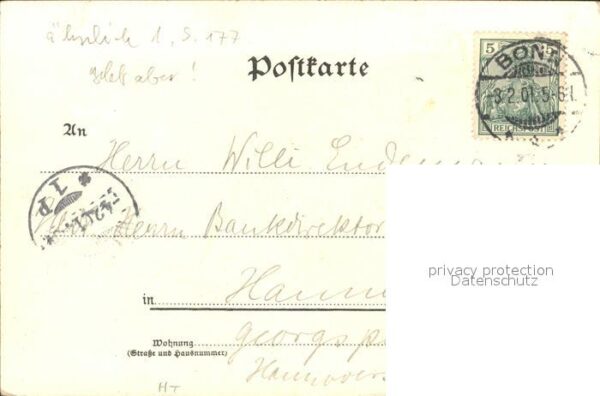 ähnlich 1, S. 177
aber!
Postkarte
5 5
REICHSPOST
BONN
3.2.01.5-6.
An
Herrn Willi
Herrn Bankdirektor
in Hann
Wohnung
(Straße und Hausnummer)
Georgsp
Hannover
HT
privacy protection
Datenschutz